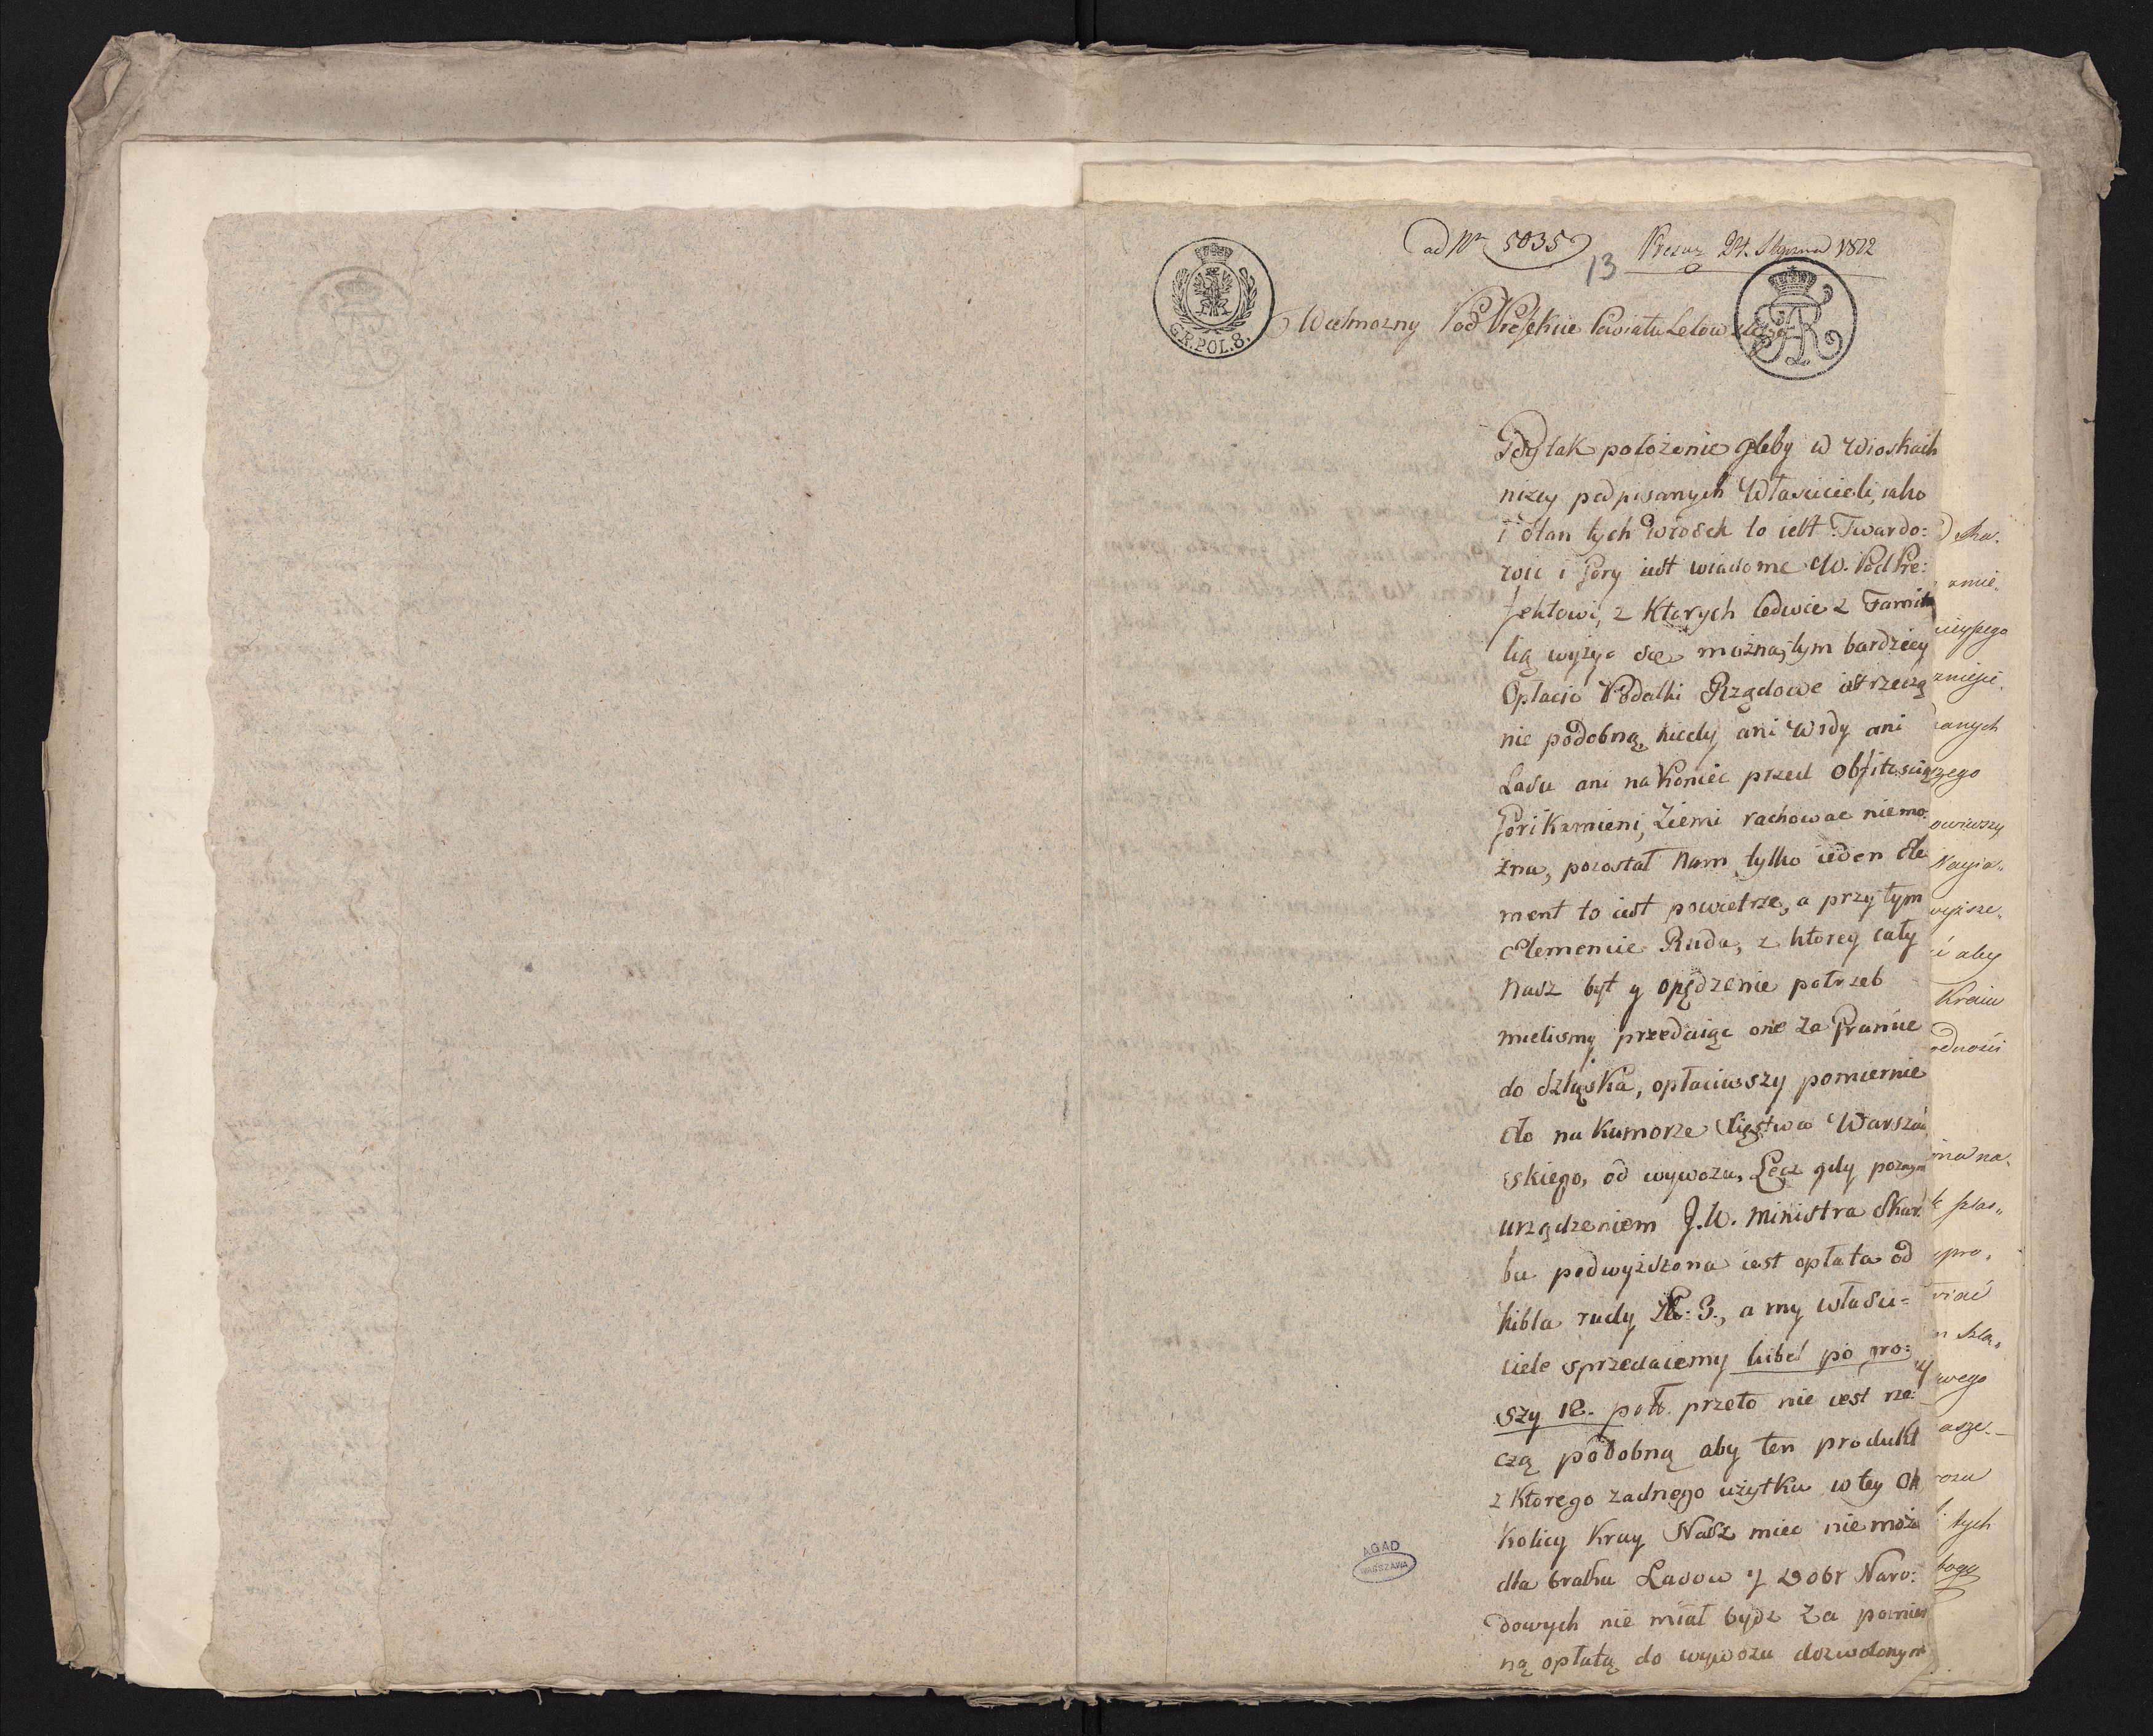 ad Nr 5035
13
Praesnz 24. Stycznia 1812
GR.POL.8.
Wielmożny PodPrefekcie Powiatu Lelowskiego
Gdy tak położenie gleby w Wioskach
niżey podpisanych Właścicieli, iako
i stan tych wiosek to iest Twardo=
wic i Gory iest wiadome W. PodPre:
fektowi, z ktorych ledwie z Fami
lią wyżyc się można, tym bardziey
Opłacic Podatki Rządowe iest rzeczą
nie podobną, kiedy ani Wody ani
Lasu ani na koniec przed obfitoscią
Gor i Kamieni, Ziemi rachowac niemo:
żna, pozostał Nam tylko ieden Ele
ment to iest powietrze, a przy tym
Elemencie Ruda, z ktorey cały
Nasz byt y opędzenie potrzeb
mielismy przedaiąc one za Granice
do Szląska, opłaciwszy pomiernie
cło na Kamorze Xięstwa Warszaw
skiego, od wywozu. Lecz gdy poznym
urządzeniem J.W. Ministra Skar
bu podwyższona iest opłata od
kibla rudy Zł: 3., a my własci=
ciele sprzedaiemy kibel po gro:
szy 12. pol. przeto nie iest rze:
czą podobną aby ten produkt
z ktorego zadnego użytku w tey Ok
kolicy Kray Nasz miec niemoż
dla braku Lasow y Dobr Naro:
dowych nie miał bydz za pomier
ną opłatą do wywozu dozwolonym
cieyszego
zanych
rzego
owiwszy
Nayia„
ć aby
Kraiu
ednosci
ma na„
ypro„
wego
asze„
tych
AGAD
WARSZAWA